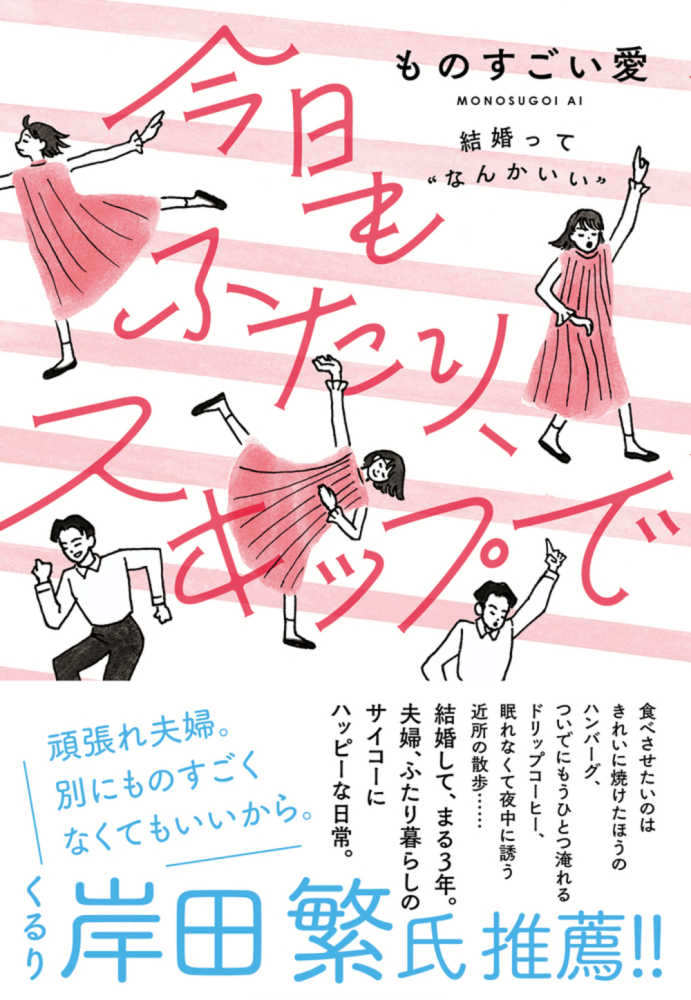 ものすごい愛
MONOSUGOI AI
結婚って
“なんかいい”
今日も
ふたり、
スキップで
食べさせたいのは
きれいに焼けたほうの
ハンバーグ、
ついでにもうひとつ淹れる
ドリップコーヒー、
眠れなくて夜中に誘う
近所の散歩……
結婚して、まる3年。
夫婦、ふたり暮らしの
サイコーに
ハッピーな日常。
頑張れ夫婦。
別にものすごく
なくてもいいから。
くるり
岸田 繁氏 推薦!!